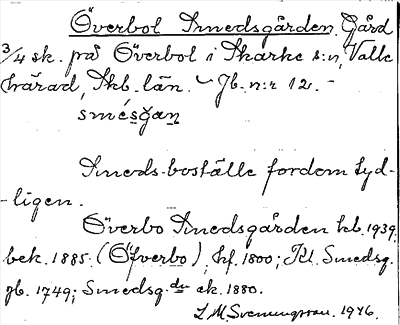 Överbol Smedsgården, Gård
3/4 sk. på Överbol i Skarke s:n, Valle
härad, Skb. län. – Jb. n:r 12. –
smésgan
Smeds-boställe fordom tyd-
-ligen.
Överbo Smedsgården kb. 1939.
bek. 1885. (Öfverbo); hf. 1800; Kl. Smedsg.
jb. 1749; Smedsg. de ek. 1880.
L M Svenungsson. 1946.